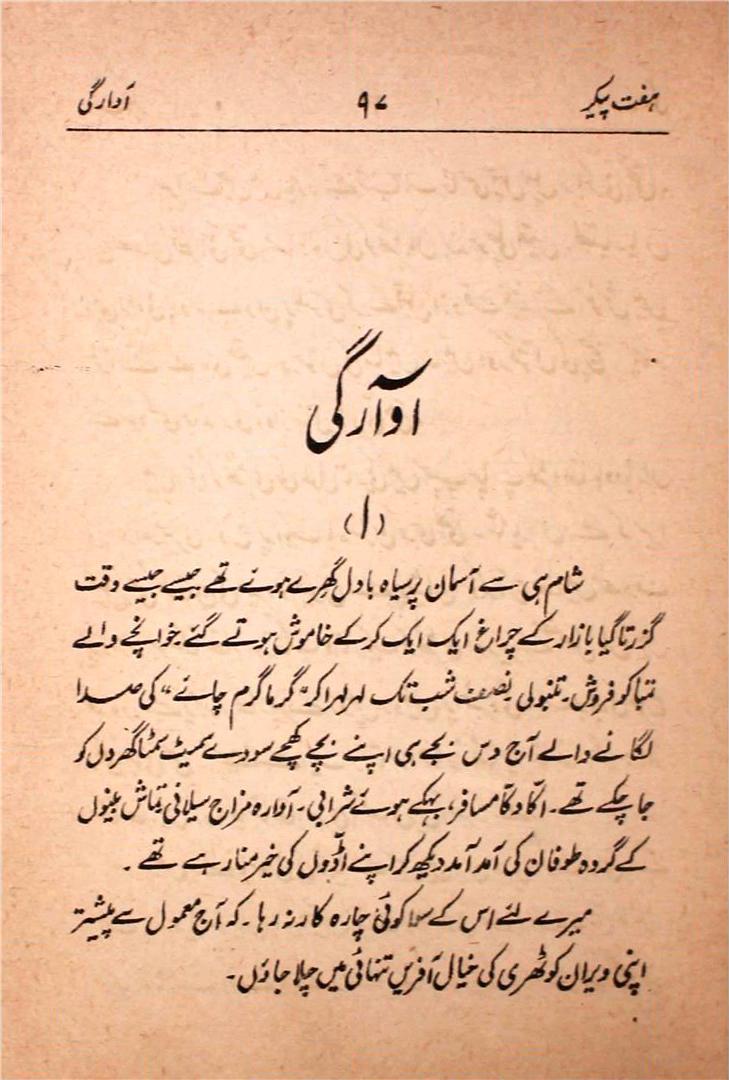 ہفت پیکر ۹۷ آوارگی
آوارگی
(۱)
شام ہی سے آسمان پر سیاہ بادل گھرے ہوئے تھے جیسے جیسے وقت
گزرتا گیا بازار کے چراغ ایک ایک کرکے خاموش ہوتے گئے۔ خوانچے والے
تنباکو فروش۔ تنبولی نصف شب تک لہرا لہرا کر "گرما گرم چائے" کی صدا
لگانے والے آج دس بجے ہی اپنے بچے کھچے سودے سمیٹ سمٹا گھر دل کو
جا چکے تھے۔ اکّا دکّا مسافر، بہکے ہوئے شرابی۔ آوارہ مزاج سیلانی تماش بینوں
کے گروہ طوفان کی آمد آمد دیکھ کر اپنے اڈّوں کی خیر منا رہے تھے ۔
میرے لئے اس کے سوا کوئی چارہ کار نہ رہا۔ کہ آج معمول سے پیشتر
اپنی ویران کوٹھری کی خیال آفریں تنہائی میں چلا جاؤں۔